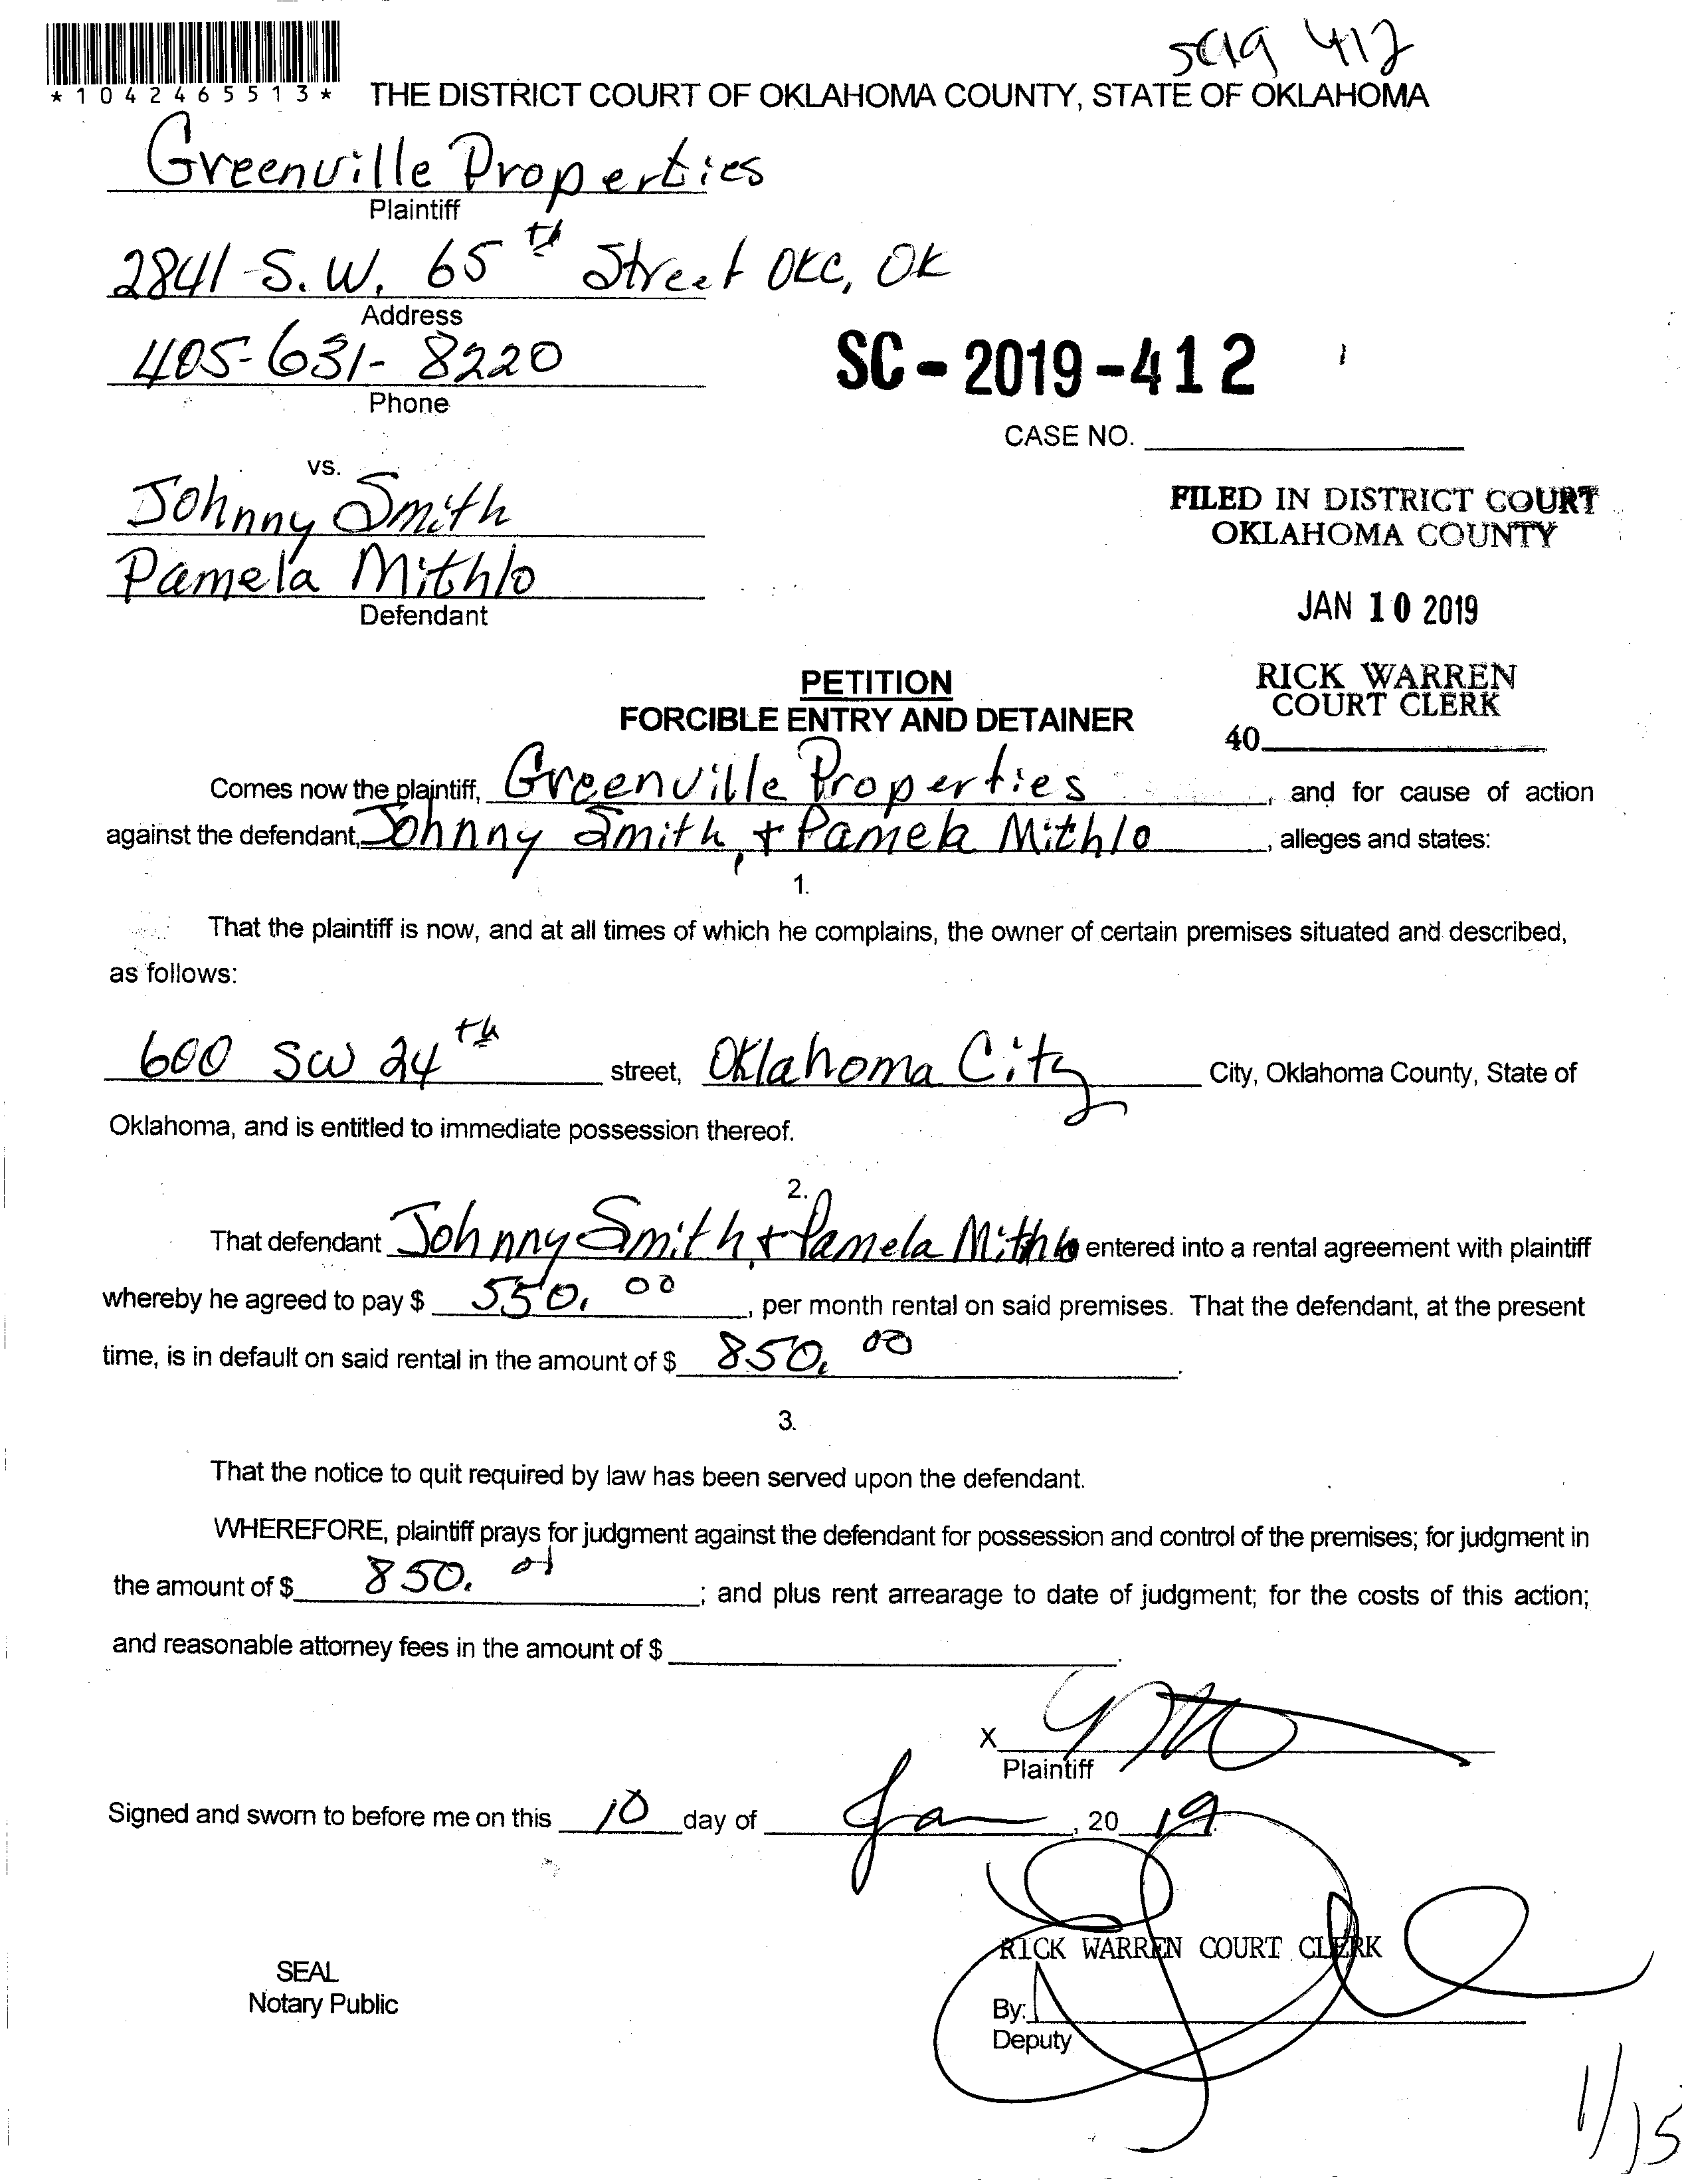 SC19 412
*1042465513*
THE DISTRICT COURT OF OKLAHOMA COUNTY, STATE OF OKLAHOMA
Greenville Properties
Plaintiff
2841 S.W. 65th Street OKC, OK
Address
405-631-8220
Phone
SC-2019-412
CASE NO.
vs.
Johnny Smith
Pamela Mithlo
Defendant
FILED IN DISTRICT COURT
OKLAHOMA COUNTY
JAN 10 2019
RICK WARREN
COURT CLERK
40
PETITION
FORCIBLE ENTRY AND DETAINER
Comes now the plaintiff, Greenville Properties, and for cause of action
against the defendant, Johnny Smith, + Pamela Mithlo, alleges and states:
1.
That the plaintiff is now, and at all times of which he complains, the owner of certain premises situated and described,
as follows:
600 SW 24th street, Oklahoma City City, Oklahoma County, State of
Oklahoma, and is entitled to immediate possession thereof.
2.
That defendant Johnny Smith, + Pamela Mithlo entered into a rental agreement with plaintiff
whereby he agreed to pay $ 550.00, per month rental on said premises. That the defendant, at the present
time, is in default on said rental in the amount of $ 850.00.
3.
That the notice to quit required by law has been served upon the defendant.
WHEREFORE, plaintiff prays for judgment against the defendant for possession and control of the premises; for judgment in
the amount of $ 850.; and plus rent arrearage to date of judgment; for the costs of this action;
and reasonable attorney fees in the amount of $ .
X
Plaintiff
Signed and sworn to before me on this 10 day of Jan, 20 19.
RICK WARREN COURT CLERK
SEAL
Notary Public
By:
Deputy
1/15